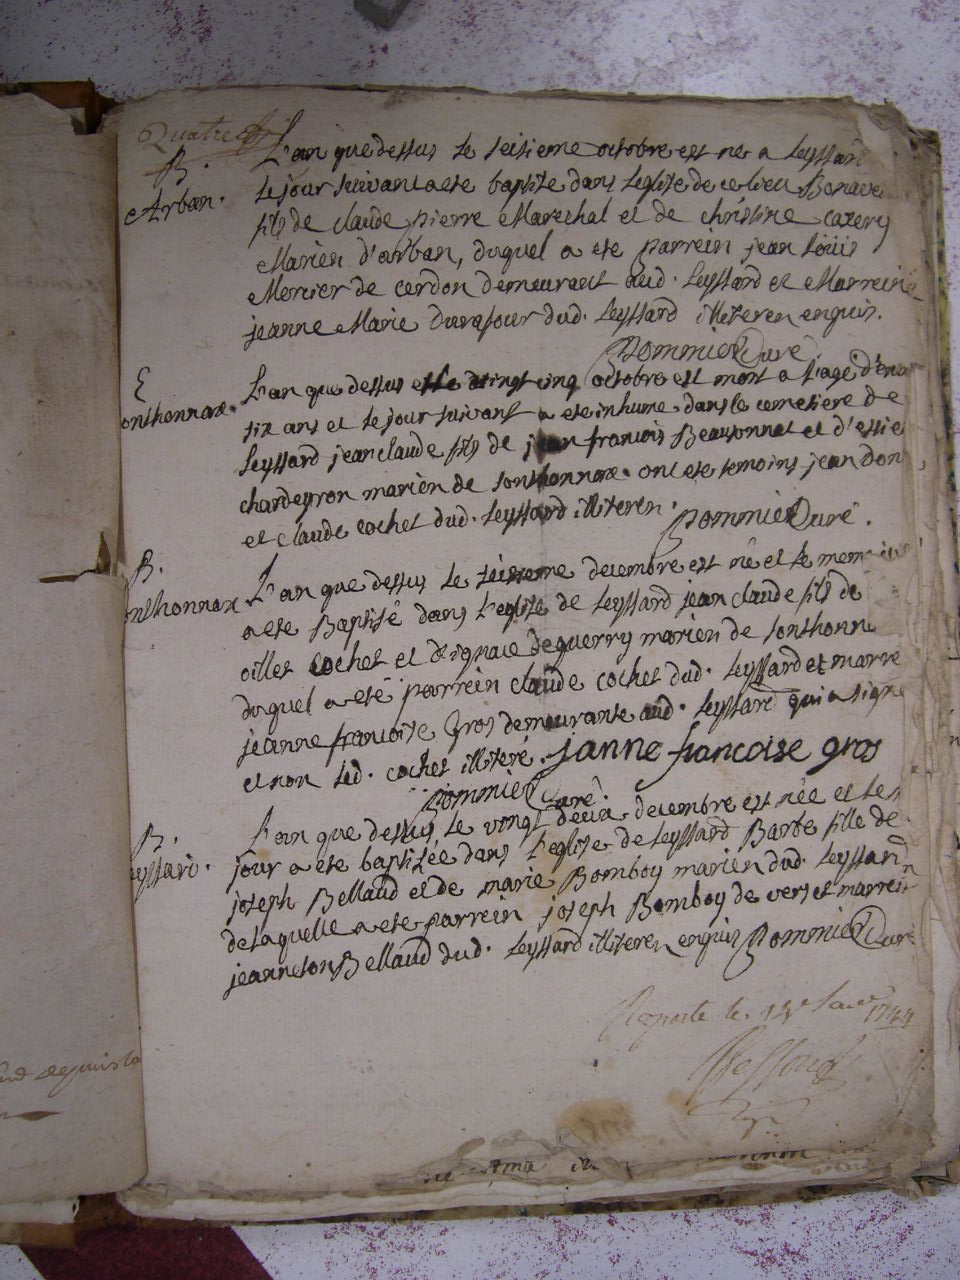 Quatre
B.
Arban.
L'an que dessus le seisieme octobre est né a Leyssard
le jour suivant a ete baptise dans l'eglise de ce lieu Bonave
fils de claude pierre Marechal et de christine cazery
Marien d'arban, duquel a ete parrein jean loüis
Mercier de cerdon demeurant aud. Leyssard et Marreine
jeanne Marie Durafour dud. Leyssard illiteren enquis.
Pommier Curé.
E
onthonnax.
L'an que dessus et le vingt cinq octobre est mort a l'age d'env
six ans et le jour suivant a ete inhumé dans le cemetiere de
Leyssard jean claude fils de jean francois Beausonnat et d'
chardeyron marién de sonthonnax. ont ete temoins jean don
et claude cochet dud. Leyssard illiteren.
Pommier Curé.
B.
onthonnax
L'an que dessus le seisieme decembre est né et le meme
a ete Baptisé dans l'eglise de Leyssard jean claude fils de
cochet et de deguerry marien de sonthonn
duquel a eté parrein claude cochet dud. Leyssard et marre
jeanne francoise Gros demeurante aud. Leyssard qui a signe
et non led. cochet illiteré. janne francoise gros
Pommier Curé.
B.
eyssard.
L'an que dessus le vingt deux decembre est née et le
jour a ete baptizée dans l'eglise de Leyssard Barbe fille de
joseph Bellaud et de marie Bomboy marien dud. Leyssard
de laquelle a ete parrein joseph Bomboy de vers et marrein
jeanneton Bellaud dud. Leyssard illiteren enquis Pommier Curé
le 1744
depuis la